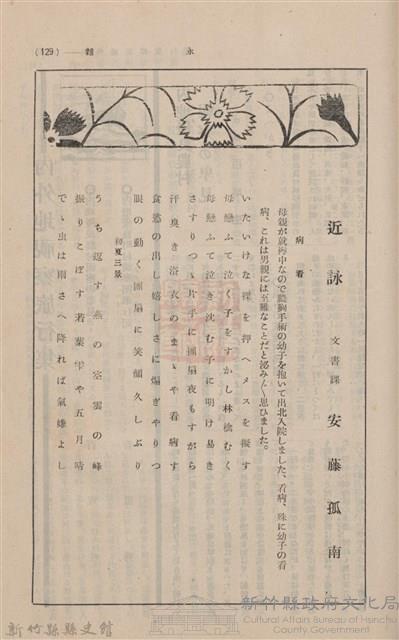 (129)
永
雜
近詠
文書課 安藤孤南
病看
母親が就褥中なので膿胸手術の幼子を抱いて出北入院しました、看病、殊に幼子の看
病、これは男親には至難なことだと泌み〲思ひました。
いたいけな裸を押へメスを擬す
母戀ふて泣く子をすかし林檎むく
母戀ふて泣き沈む子に明け易き
さすりつゝ片手に團扇夜もすがら
汗臭き浴衣のまゝや看病す
食慾の出し嬉しさに煽ぎやりつ
眼の動く團扇に笑顏久しぶり
初夏三景
うち返す燕の空雲の峰
振りこぼす若葉雫や五月晴
でゝ虫は雨さへ降れば氣嫌よし
新竹縣縣史館
新竹縣政府文化局
Cultural Affairs Bureau of Hsinchu
County Government